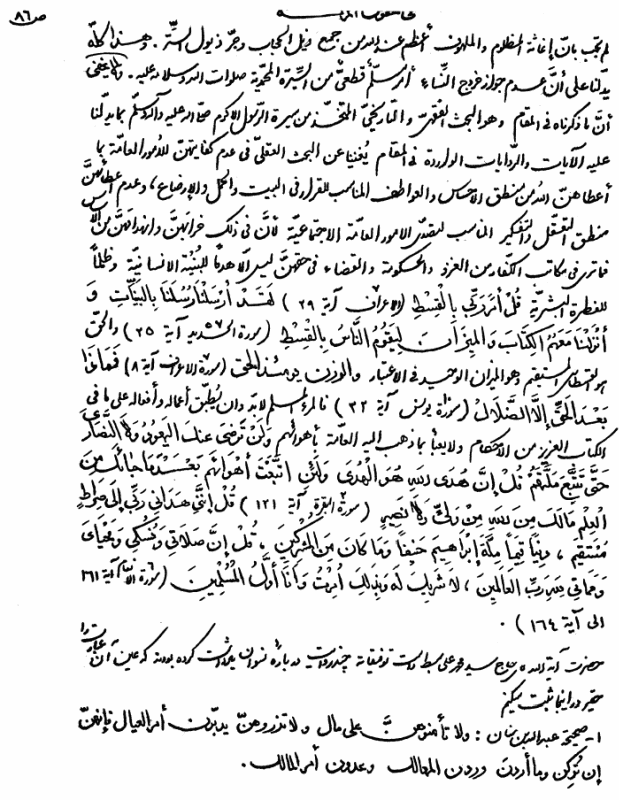 ص ٨٦
لم تجب بأن إغاثة المظلوم والملهوف أعظم عند الله من جميع ذيل الحجاب وجرّ ذيول الستر . وهذا كله
يدلنا على أنّ عدم جواز خروج النساء أمر مسلّم قطعيّ من السيرة المحمدية صلوات الله وسلامه عليه . ولا يخفى
أنّ ما ذكرناه في المقام وهو البحث الفقهي والتاريخيّ المتخذ من سيرة الرسول الاكرم صلى الله عليه وآله وسلم بما يدلنا
عليه الآيات والروايات الواردة في المقام يُغنينا عن البحث العقليّ في عدم كفايتهنّ للأمور العامّة بما
أعطاهنّ الله من منطق الاحساس والعواطف المناسب للقرار في البيت والحمل والإرضاع ، وعدم عطائهنّ
منطق التعقّل والتفكير المناسب لتصدّي الامور العامّة الاجتماعيّة لأنّ في ذلك خرابهنّ وانهدامهنّ
فما ترى في مكاتب الكفّار من الغزو والحكومة والقضاء في حقّهنّ ليس إلّا هدماً للبُنية الانسانيّة وظلماً
للفطرة البشريّة قُلْ أَمَرَ رَبِّي بِالْقِسْطِ (الاعراف آية ٢٩) لَقَدْ أَرْسَلْنَا رُسُلَنَا بِالْبَيِّنَاتِ وَ
أَنْزَلْنَا مَعَهُمُ الْكِتَابَ وَالْمِيزَانَ لِيَقُومَ النَّاسُ بِالْقِسْطِ (سورة الحديد ٥٧ آية ٢٥) والحقّ
هو القسطاس المستقيم وهو الميزان الوحيد في الاعتبار والوزن يومئذ الحق (سورة الاعراف ٧ آية ٨) فَمَاذَا
بَعْدَ الْحَقِّ إِلَّا الضَّلَالُ (سورة يونس آية ٣٢) فالمرء المسلم لابدّ وان يُطبّق أعماله وأفعاله على ما في
الكتاب العزيز من الاحكام ولا يعبأ بما ذهب اليه العامّة بأهوائهم وَلَنْ تَرْضَى عَنْكَ الْيَهُودُ وَلَا النَّصَارَى
حَتَّى تَتَّبِعَ مِلَّتَهُمْ قُلْ إِنَّ هُدَى اللَّهِ هُوَ الْهُدَى وَلَئِنِ اتَّبَعْتَ أَهْوَاءَهُمْ بَعْدَ مَا جَاءَكَ مِنَ
الْعِلْمِ مَا لَكَ مِنَ اللَّهِ مِنْ وَلِيٍّ وَلَا نَصِيرٍ (سورة البقرة آية ١٢١) قُلْ إِنَّنِي هَدَانِي رَبِّي إِلَى صِرَاطٍ
مُسْتَقِيمٍ ، دِيناً قِيَماً مِلَّةَ إِبْرَاهِيمَ حَنِيفاً وَمَا كَانَ مِنَ الْمُشْرِكِينَ ، قُلْ إِنَّ صَلَاتِي وَنُسُكِي وَمَحْيَايَ
وَمَمَاتِي لِلَّهِ رَبِّ الْعَالَمِينَ ، لَا شَرِيكَ لَهُ وَبِذَلِكَ أُمِرْتُ وَأَنَا أَوَّلُ الْمُسْلِمِينَ (سورة الانعام ٦ آية ١٦١
الى آية ١٦٤) .
حضرت آية الله حاج سيد محمد على سبط دامت توفيقاته چند روايت درباره نسوان يادداشت كرده بودند كه عين آن عبارت را
حقير در اينجا ثبت ميكنم
١- صحيحة عبد الله بن سنان : ولا تأمنوهنّ على مال ولا تذروهنّ يدبّرن أمر العيال فإنهنّ
إن تُركن وما أردن وردن المهالك وعدون أمر المالك .